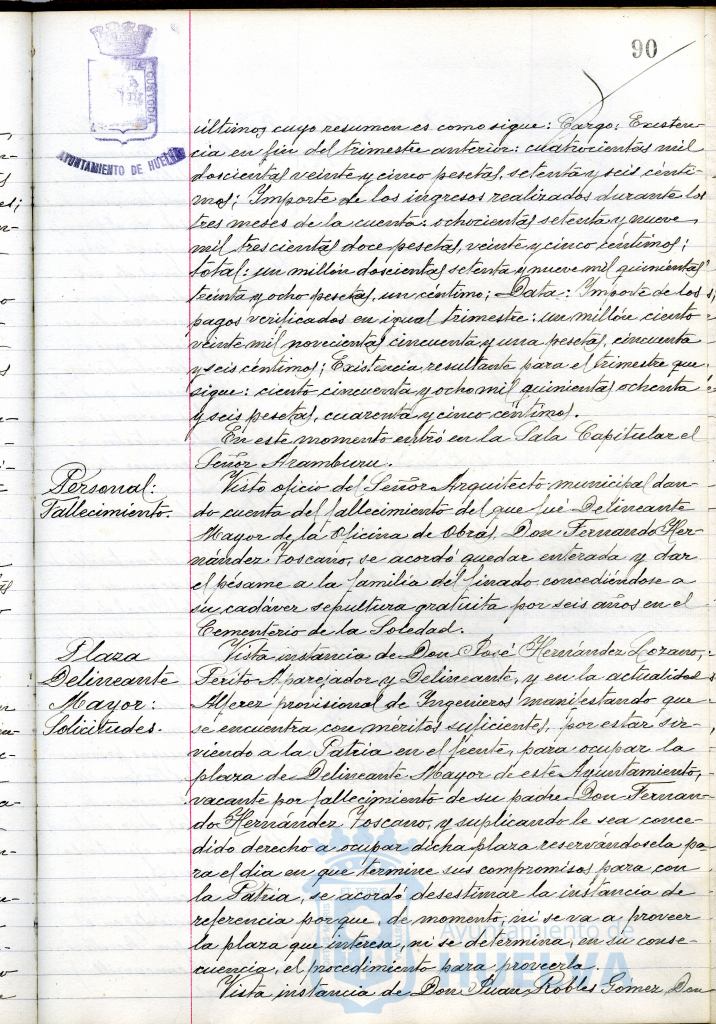 90
CUSTODIA
AYUNTAMIENTO DE HUELVA
último, cuyo resumen es como sigue: Cargo: Existen-
cia en fin del trimestre anterior: cuatrocientas mil
doscientas veinte y cinco pesetas, setenta y seis cénti-
mos; Importe de los ingresos realizados durante los
tres meses de la cuenta: ochocientas setenta y nueve
mil trescientas doce pesetas, veinte y cinco céntimos;
total: un millón doscientas setenta y nueve mil quinientas
treinta y ocho pesetas, un céntimo; Data: Importe de los
pagos verificados en igual trimestre: un millón ciento
veinte mil novecientas cincuenta y una pesetas, cincuenta
y seis céntimos; Existencia resultante para el trimestre que
sigue: ciento cincuenta y ocho mil quinientas ochenta
y seis pesetas, cuarenta y cinco céntimos.
En este momento entró en la Sala Capitular el
Señor Aramburu.
Personal:
Fallecimiento.
Visto oficio del Señor Arquitecto municipal dan-
do cuenta del fallecimiento del que fué Delineante
Mayor de la Oficina de Obras, Don Fernando Her-
nández Toscano, se acordó quedar enterada y dar
el pésame a la familia del finado concediéndose a
su cadáver sepultura gratuita por seis años en el
Cementerio de la Soledad.
Plaza
Delineante
Mayor:
Solicitudes.
Vista instancia de Don José Hernández Lozano,
Perito Aparejador y Delineante, y en la actualidad
Alferez provisional de Ingenieros manifestando que
se encuentra con méritos suficientes, por estar sir-
viendo a la Patria en el frente, para ocupar la
plaza de Delineante Mayor de este Ayuntamiento,
vacante por fallecimiento de su padre Don Fernan-
do Hernández Toscano, y suplicando le sea conce-
dido derecho a ocupar dicha plaza reservándosela pa-
ra el dia en que termine sus compromisos para con
la Patria, se acordó desestimar la instancia de
referencia porque, de momento, ni se va a proveer
la plaza que interesa, ni se determina, en su conse-
cuencia, el procedimiento para proveerla.
Vista instancia de Don Juan Robles Gómez, Don
Ayuntamiento de
HUELVA